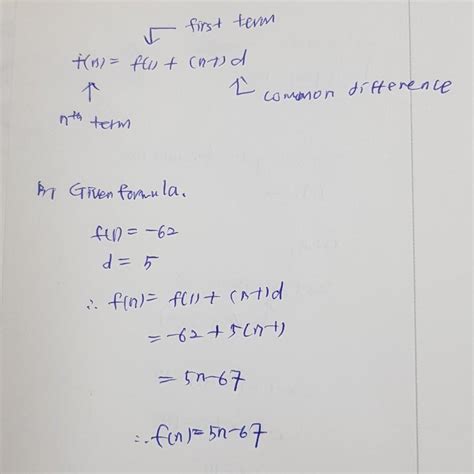 first term
f(n) = f(1) + (n-1) d
common difference
nth term
By Given formula.
f(1) = -62
d = 5
∴ f(n) = f(1) + (n-1)d
= -62 + 5(n-1)
= 5n-67
∴ f(n) = 5n-67